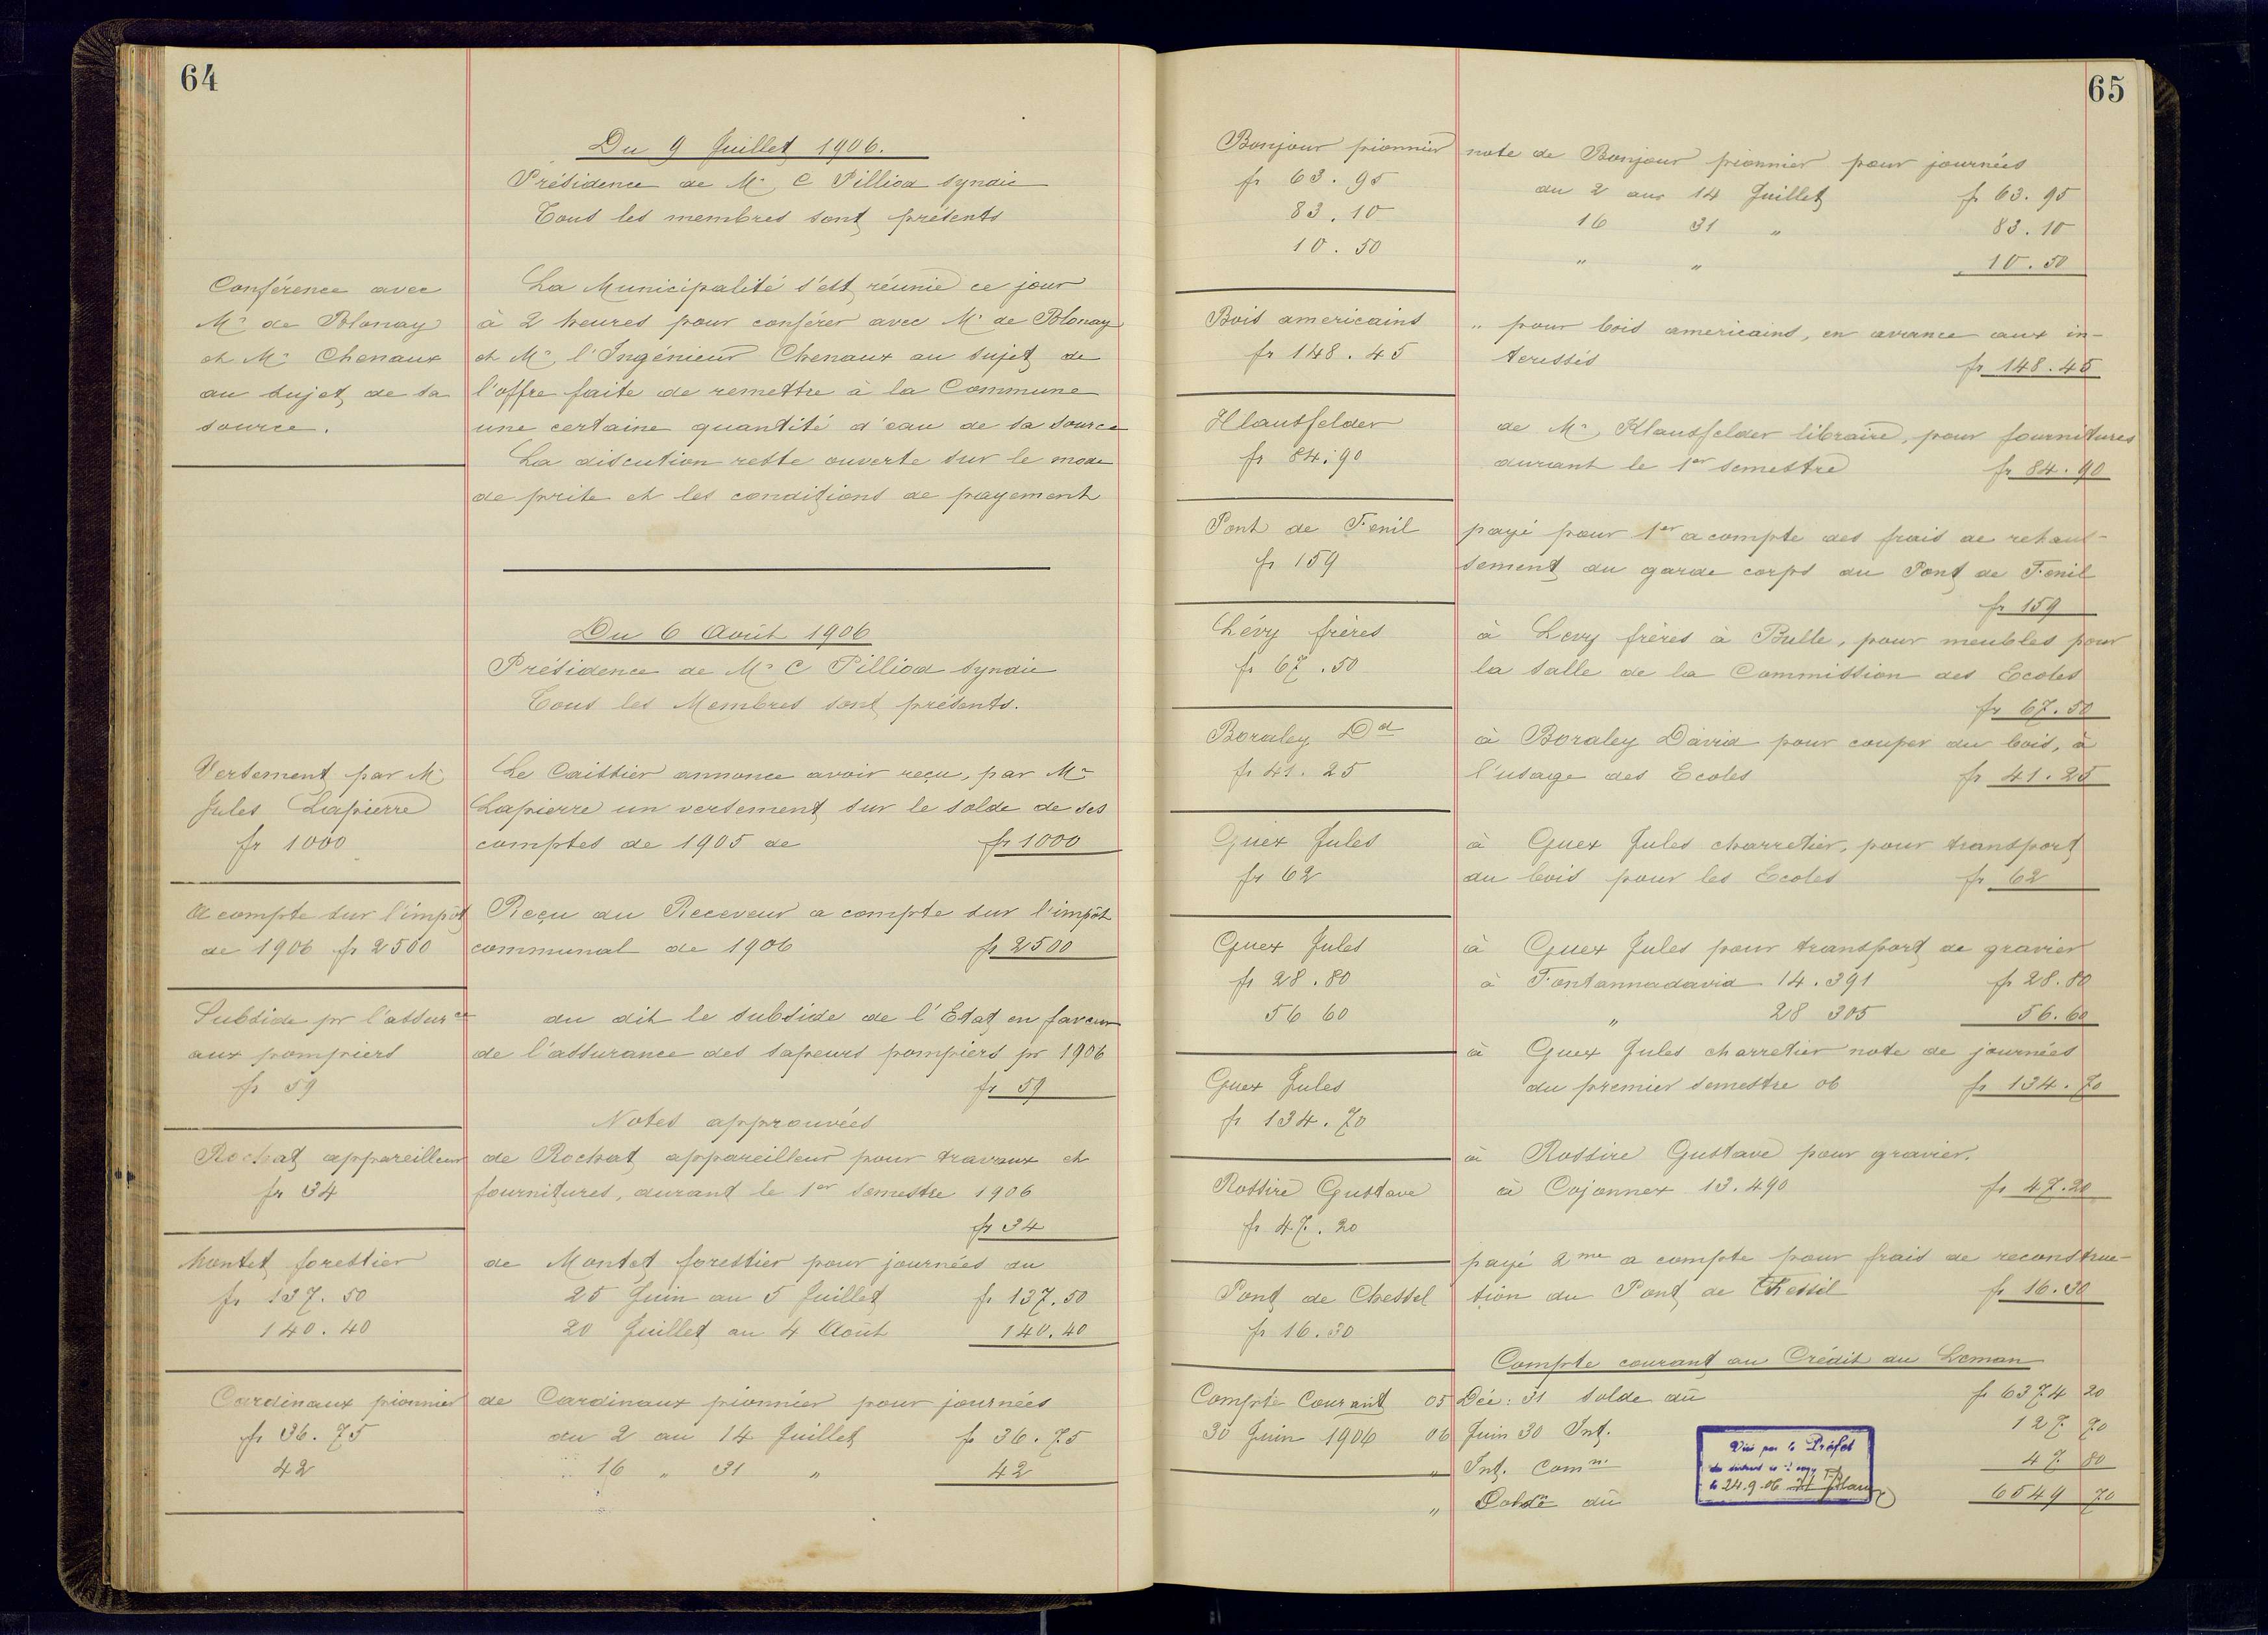 64
Du 9 Juillet 1906.
Présidence de Mr C Pilliod syndic
Tous les membres sont présents
Conférence avec
Mr de Blonay
et Mr Chenaux
au sujet de sa
source.
La Municipalité s'est réunie ce jour
à 2 heures pour conférer avec Mr de Blonay
et Mr l'Ingénieur Chenaux au sujet de
l'offre faite de remettre à la Commune
une certaine quantité d'eau de sa source
La discution reste ouverte sur le mode
de prise et les conditions de payement
Du 6 Août 1906
Présidence de Mr C Pilliod syndic
Tous les Membres sont présents.
Versement par Mr
Jules Lapierre
fr 1000
Le Caissier annonce avoir reçu, par Mr
Lapierre un versement sur le solde de ses
comptes de 1905 de fr 1000
A compte sur l'impôt
de 1906 fr 2500
Reçu du Receveur a compte sur l'impôt
communal de 1906 fr 2500
Subside pr l'assurce
aux pompiers
fr 59
du dit le subside de l'Etat en faveur
de l'assurance des sapeurs pompiers pr 1906
fr 59
Notes approuvées
Rochat appareilleur
fr 34
de Rochat appareilleur pour travaux et
fournitures, durant le 1er semestre 1906
fr 34
Montet forestier
fr 137.50
140.40
de Montet forestier pour journées du
25 Juin au 5 Juillet fr 137.50
20 Juillet au 4 Août 140.40
Cardinaux pionnier
fr 36.75
42
de Cardinaux pionnier pour journées
du 2 au 14 Juillet fr 36.75
16 " 31 " 42
65
Bonjour pionnier
fr 63.95
83.10
10.50
note de Bonjour pionnier pour journées
du 2 au 14 Juillet fr 63.95
16 31 " 83.10
" " 10.50
Bois americains
fr 148.45
" pour bois americains, en avance aux in-
teressés fr 148.45
Klausfelder
fr 84.90
de Mr Klausfelder libraire, pour fournitures
durant le 1er semestre fr 84.90
Pont de Fenil
fr 159
payé pour 1er a compte des frais de rehaus-
sement du garde corps du Pont de Fenil
fr 159
Lévy frères
fr 67.50
à Levy frères à Bulle, pour meubles pour
la salle de la Commission des Ecoles
fr 67.50
Boraley Dd
fr 41.25
à Boraley David pour couper du bois, à
l'usage des Ecoles fr 41.25
Guex Jules
fr 62
à Guex Jules charretier, pour transport
du bois pour les Ecoles fr 62
Guex Jules
fr 28.80
56 60
à Guex Jules pour transport de gravier
à Fontannadavid 14.391 fr 28.80
" 28 305 56.60
Guex Jules
fr 134.70
à Guex Jules charretier note de journées
du premier semestre 06 fr 134.70
Rossire Gustave
fr 47.20
à Rossire Gustave pour gravier.
à Cojonnex 13.490 fr 47.20
Pont de Chessel
fr 16.30
payé 2me a compte pour frais de reconstruc-
tion du Pont de Chessel fr 16.30
Compte courant au Crédit du Leman
Compte Courant
30 Juin 1906
05 Déc: 31 solde dû fr 6374 20
06 Juin 30 Int. 127 70
" Int. Comn. 47 80
" Solde dû 6549 70
Visé par le Préfet
le 24.9.06